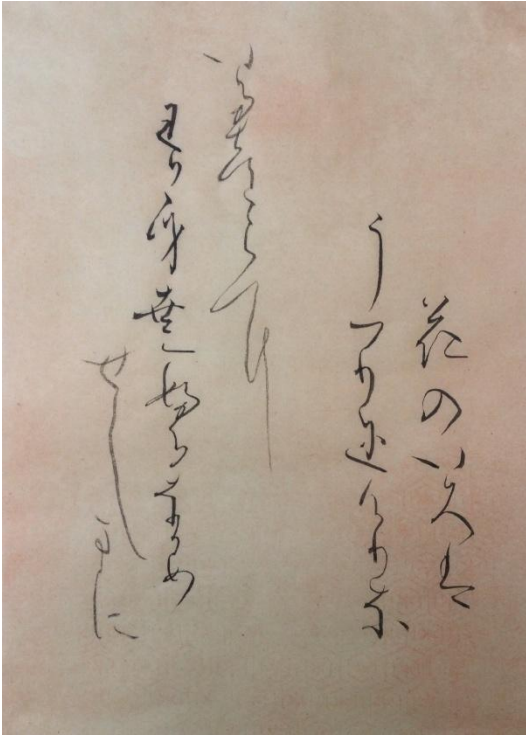 花のいろは
うつりにけりな
いたつらに
わか身世にふるなかめ
せしまに